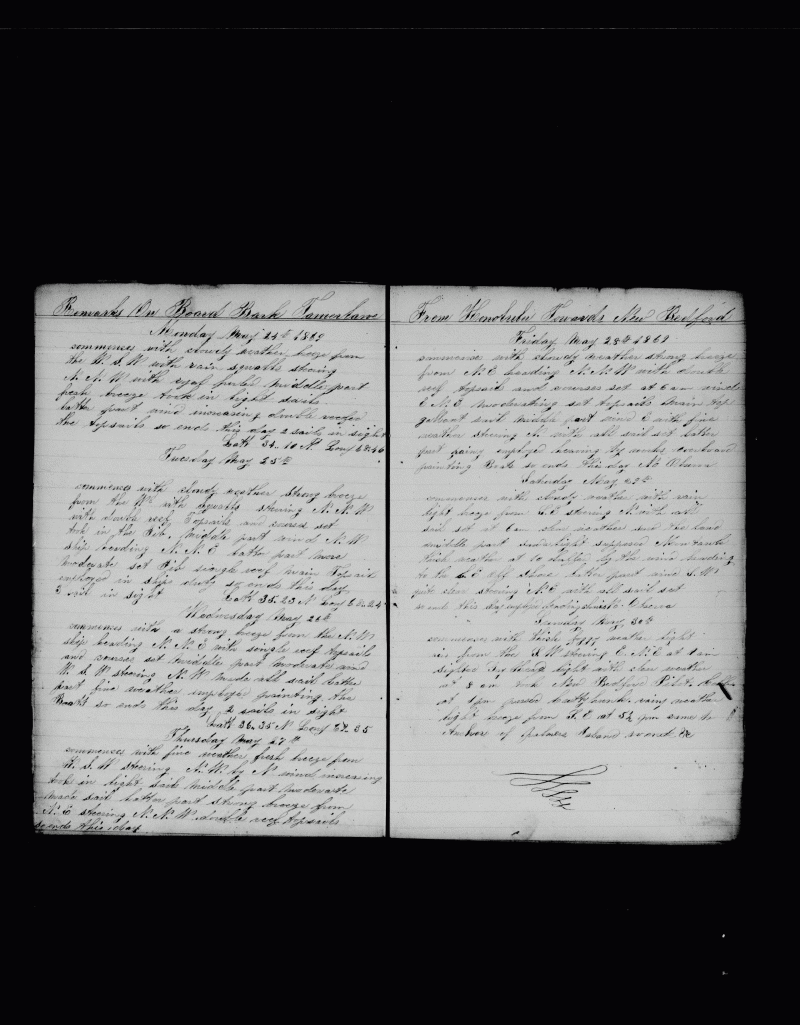 Remarks On Board Bark Tamerlane
Monday May 24th 1869
commences with cloudy weather breeze from
the W. S. W with rain squalls steering
N. N. W with royal furled middle part
fresh breeze took in light sails
latter part wind increasing double reefed
the topsails so ends this day 2 sails in sight
Latt 34.10 N. Long
Tuesday May 25th
commences with cloudy weather strong breeze
from the W. with squalls steering N. N. W
with double reef Topsails and courses set
took in the Jib. Middle part wind N. W
ship heading N. N. E latter part more
moderate set Jib single reef main Topsail
employed in ships duty so ends this day
sail in sight Latt 35.23 N Long
Wednesday May 26th
commences with a strong breeze from the N. W
ship heading N. N. E with single reef topsails
and courses set middle part moderate wind
W. S. W steering N. W made all sail latter
part fine weather employe painting the
Boats so ends this day 2 sails in sight
Latt 36.35 N Long 35
Thursday May 27th
commences with fine weather fresh breeze from
W. S. W steering N. W. by N. wind increasing
took in light sail middle part moderate
made sail latter part strong breeze from
N. E steering N. N. W double reef topsails
so ends this day
From Honolulu Towards New Bedford
Friday May 28th 1869
commence with cloudy weather strong breeze
from N. E heading N. N. W with double
reef topsail and courses set at 6 am wind
E. N. E. moderating set topsails main top
gallant sail middle part wind E with fine
weather steering N. with all sail set latter
part employed
painting Boats so ends this day No Obsern
Saturday May
commences with cloudy weather with rain
light breeze from steering N. with all
sail set at 6 am weather
middle part supposed Nantucket
thick weather at 10 the wind heading
to the off shore latter part wind S. W
steering N. E with all sail set
so ends this day No Obsern
Sunday May 30th
commences with thick foggy weather light
air from the S. W steering E. N. E at
light with clear weather
at 8 am took New Bedford Pilot
at 1 pm passed rainy weather
light breeze from S. E at 5½ pm came to
Anchor Island so end &c